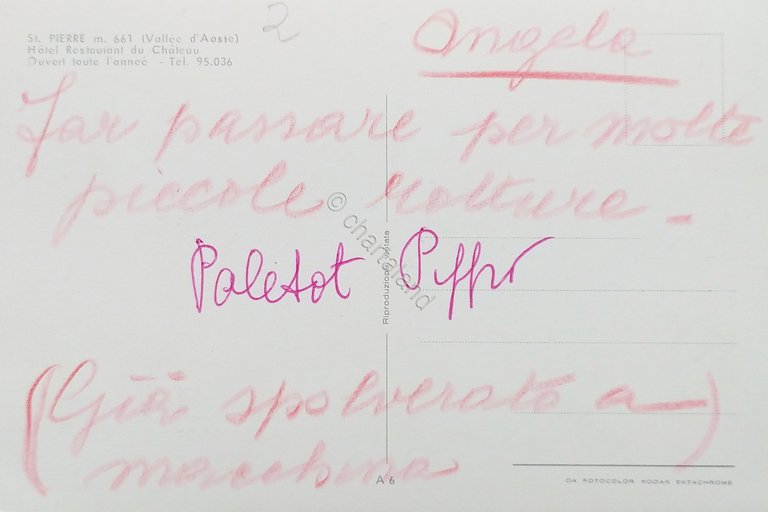 2
St. PIERRE m. 661 (Vallée d'Aoste)
Hôtel Restaurant du Château
Ouvert toute l'année - Tel. 95.036
Angela
Far passare per molte
piccole rotture -
© chartaland
Paletot
Riproduzione vietata
(Già spolverato a
macchina)
A 6
DA FOTOCOLOR KODAK EKTACHROME